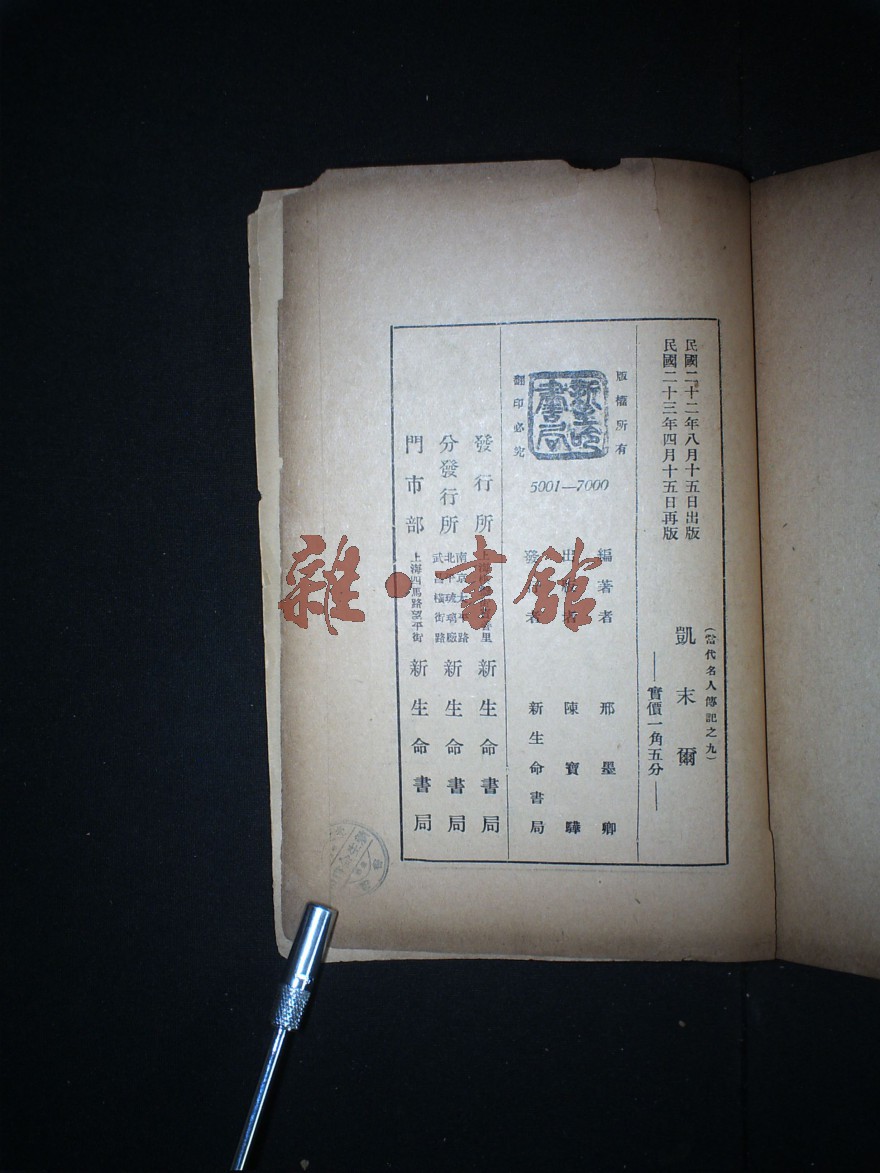 民國二十二年八月十五日出版
民國二十三年四月十五日再版
(當代名人傳記之九)
凱末爾
——實價一角五分——
版權所有
新生命書局
翻印必究
5001—7000
編著者 邢墨卿
出版者 陳寶驊
發行者 新生命書局
發行所 上海 里 新生命書局
分發行所 南京太平路 北平琉璃廠 武昌橫街路 新生命書局
門市部 上海四馬路望平街 新生命書局
雜·書館